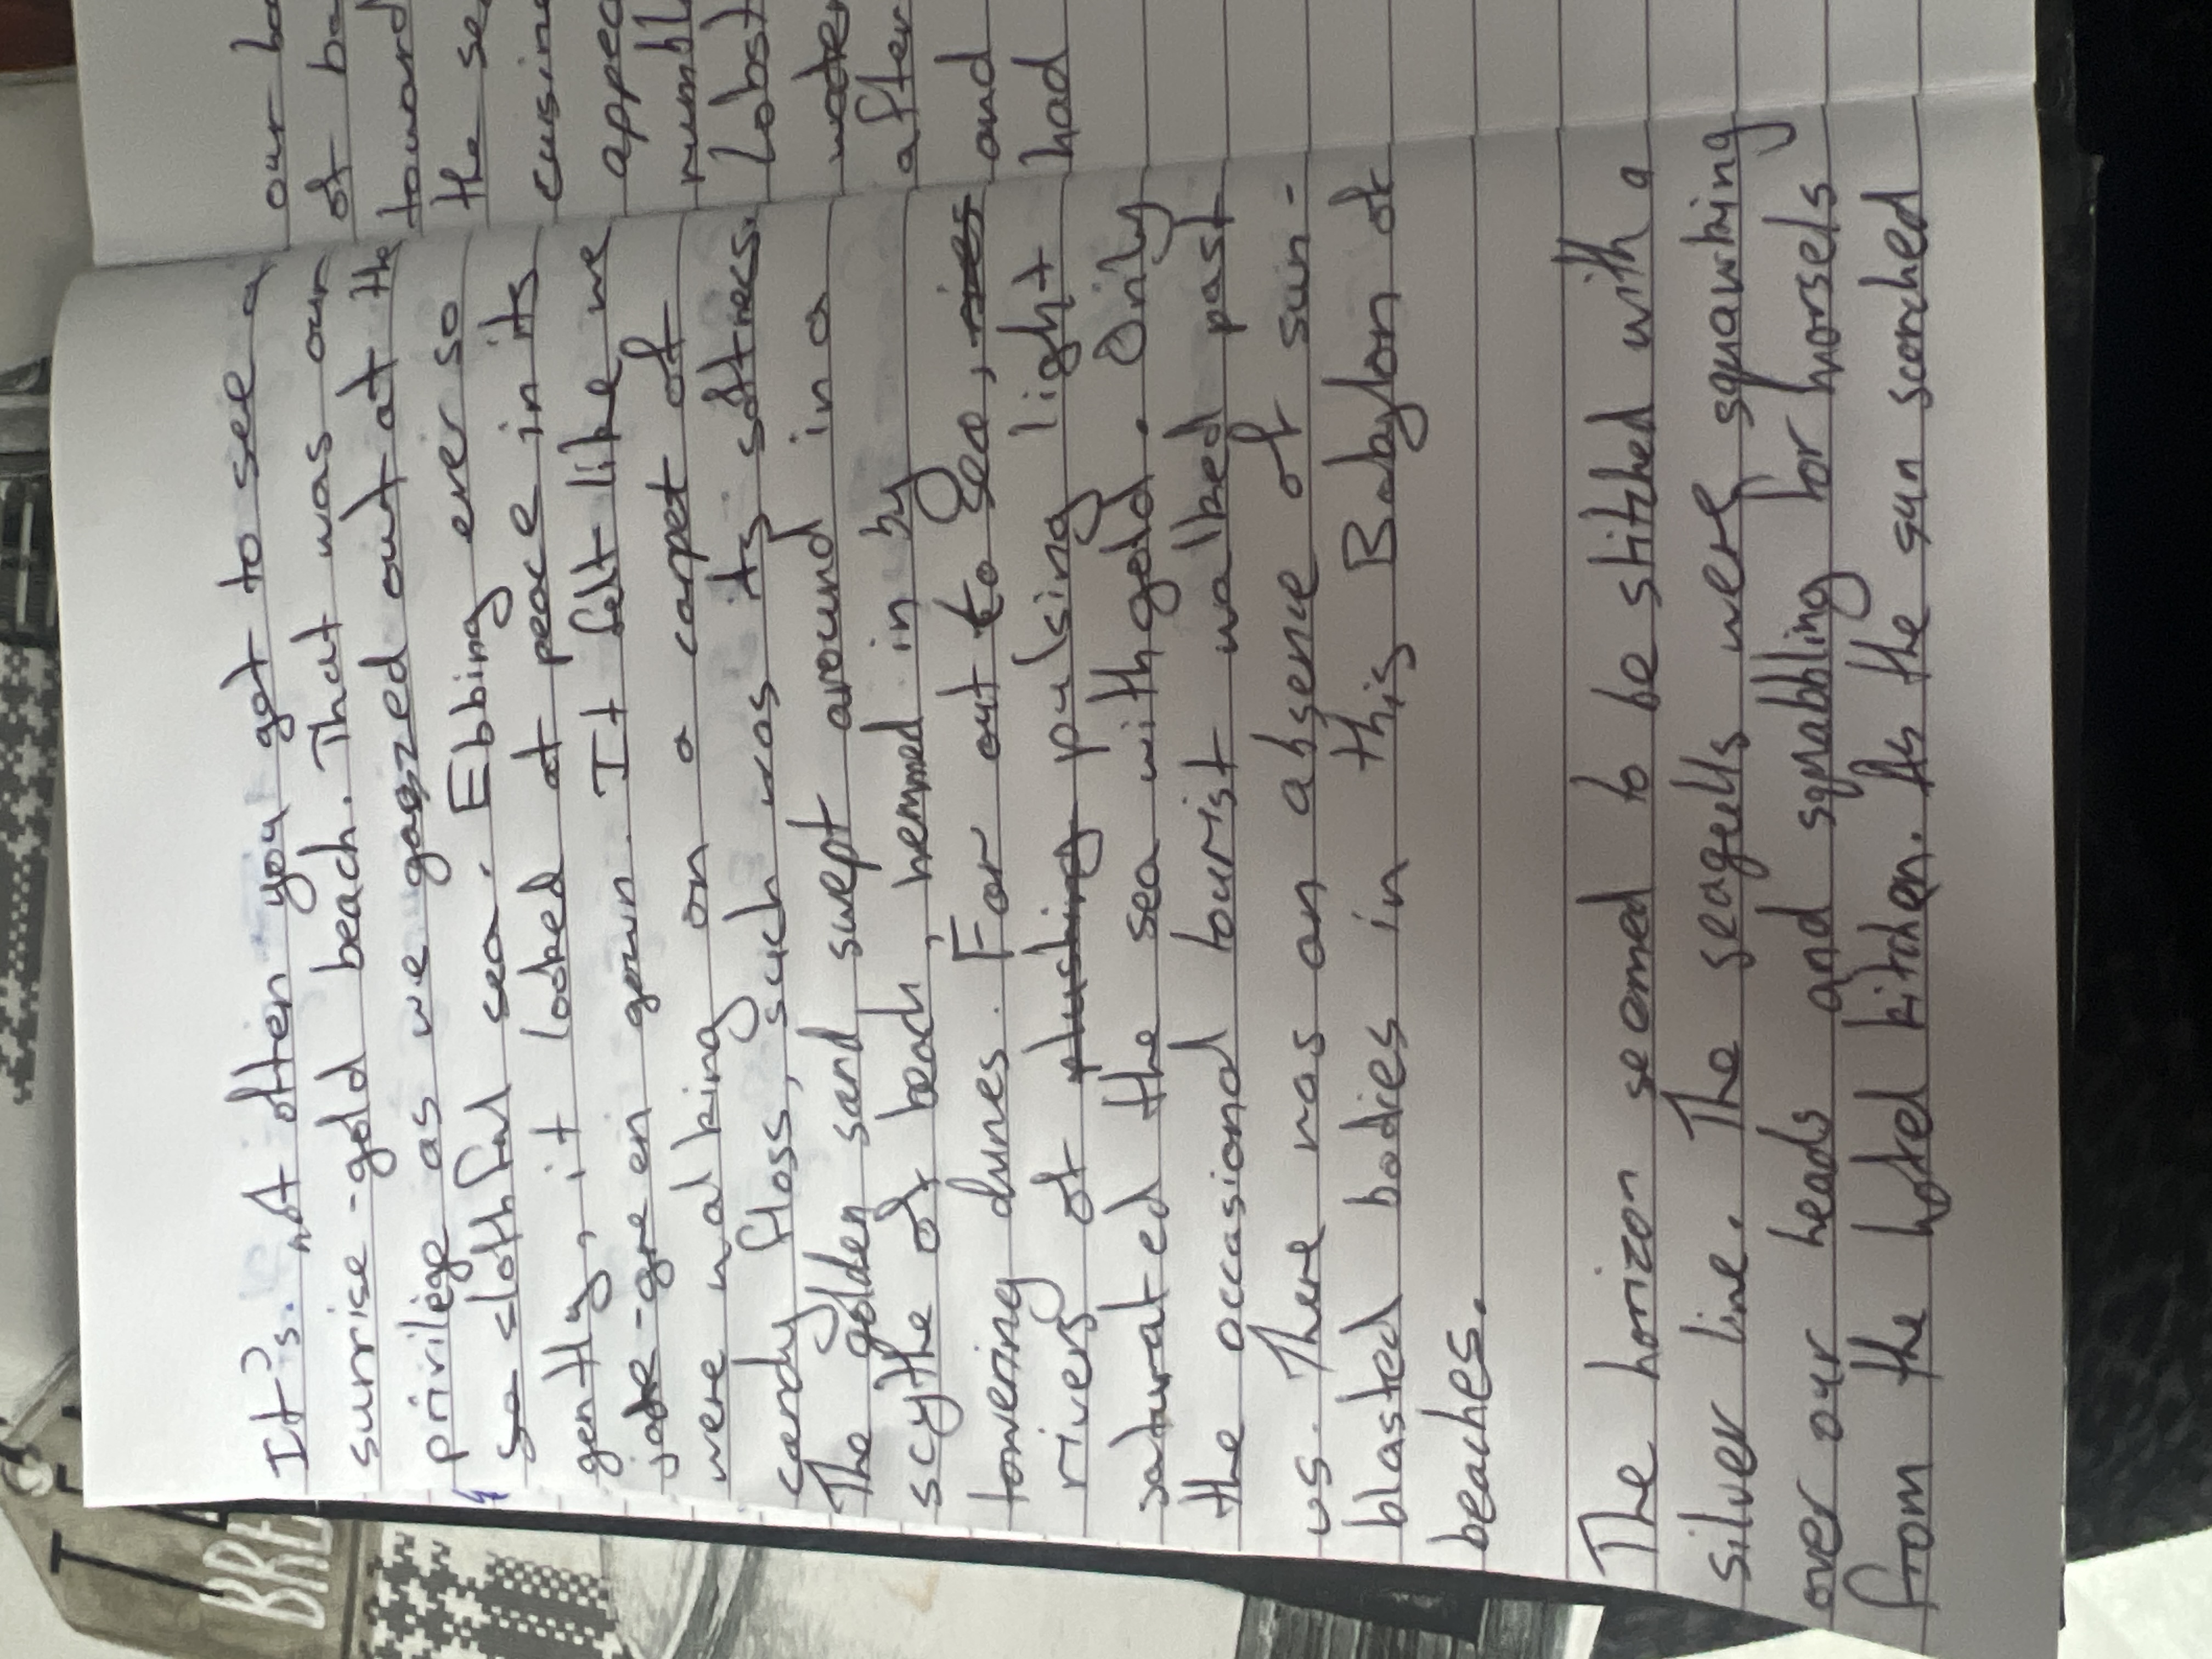 It's not often you get to see a
sunrise-gold beach. That was our
privilege as we gazed out at the
so slothful sea. Ebbing ever so
gently, it looked at peace in its
jade-green gown. It felt like we
were walking on a carpet of
candy floss, such was its softness.
The golden sand swept around in a
scythe of beach, hemmed in by
towering dunes. Far out to sea,
rivers of plushing pulsing light
saturated the sea with gold. Only
the occasional tourist walked past
us. There was an absence of sun-
blasted bodies in this Babylon of
beaches.
The horizon seemed to be stitched with a
silver line. The seagulls were squawking
over our heads and squabbling for morsels
from the hotel kitchen. As the sun scorched
our
of
toward
the
cusine
appea
numbl
Lobst
water
after
and
had
BRE